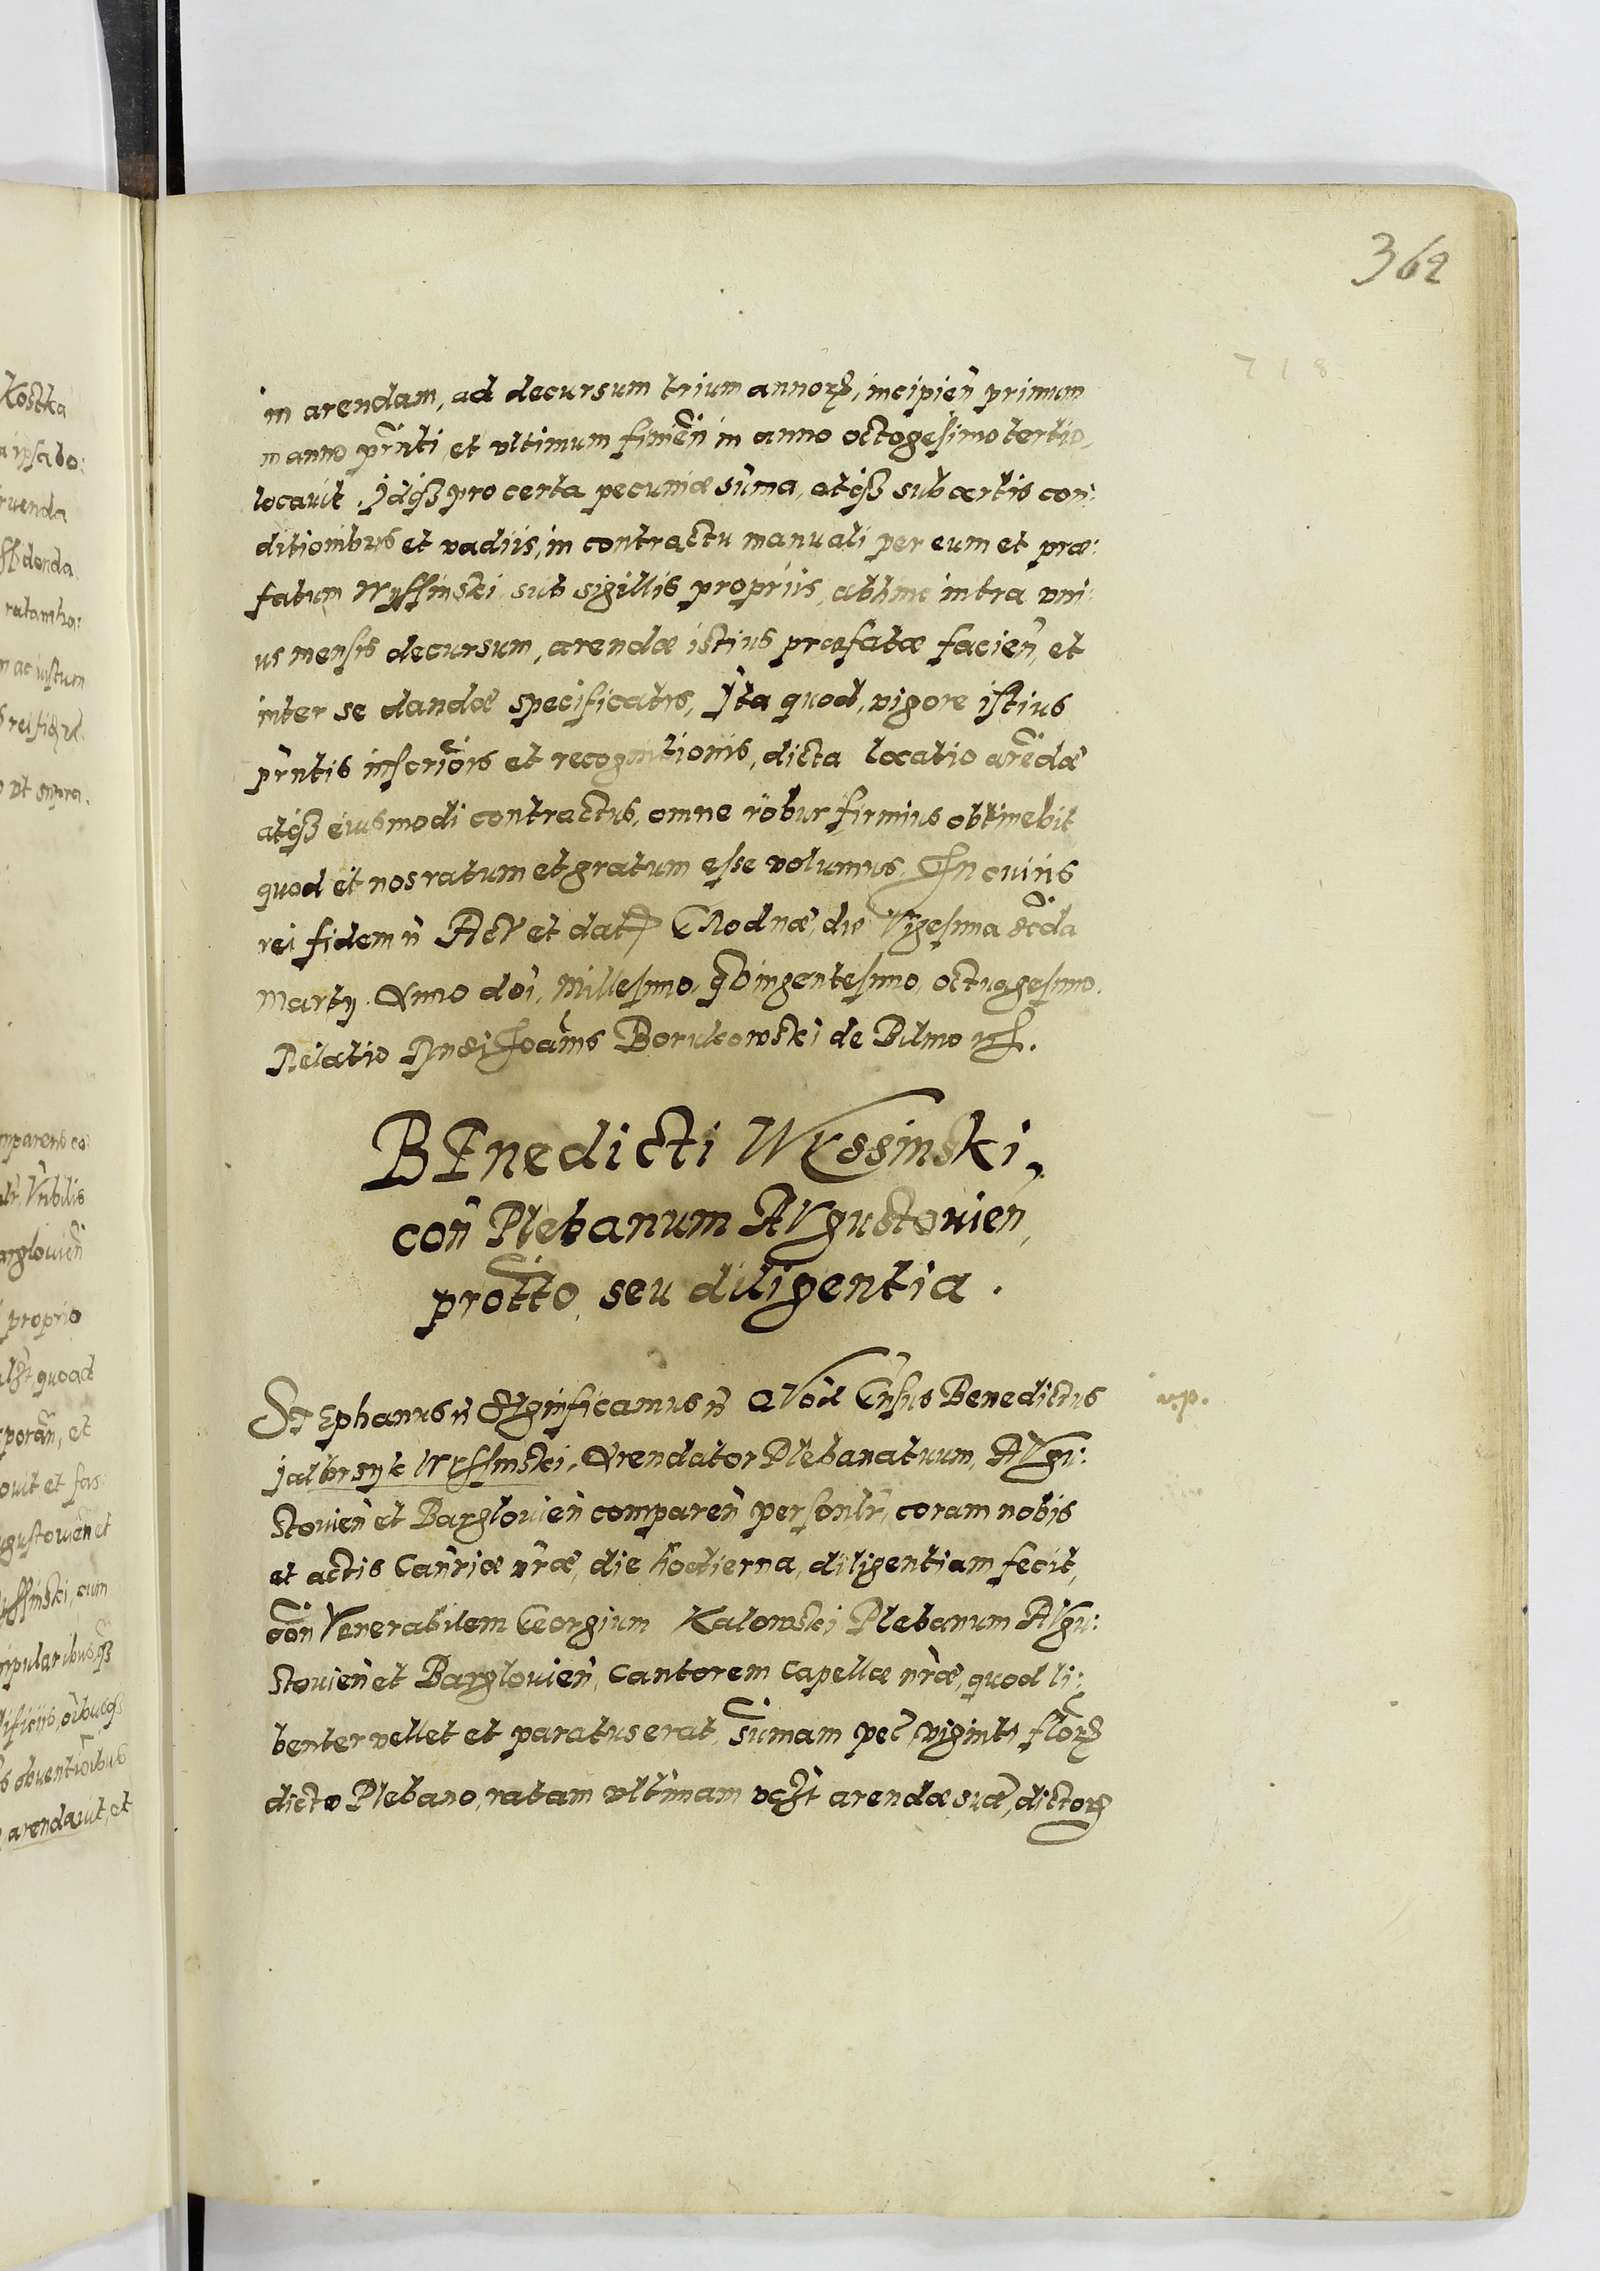 362
718
in arendam, ad decursum trium annorꝝ, incipien̄ primum
in anno pr̄nti, et vltimum finien̄ in anno octogesimo tertio,
locavit. Jdqꝫ pro certa pecuniæ sum̄a, atqꝫ sub certis con:
ditionibus et vadiis, in contractu manuali per eum et præ:
fatum Wyssinski sub sigillis propriis, abhinc intra vni:
us mensis decursum, arendæ istius præfatæ facien̄, et
inter se dandæ specificatis, Jta quod, vigore istius
pr̄ntis inscrip̄tiōis et recognitionis, dicta locatio aren̄dæ
atqꝫ eiusmodi contractus, omne robur firmius obtinebit
quod et nos ratum et gratum esse volumus, Jn cuius
rei fidem n̄ Act et dat Grodnæ, die Vigesima Sc̄da
Martij. Anno dōi, Millesimo, qūingentesimo, octuagesimo.
Relatio Joānis Borukowski de Bilino
BEnedicti Wyssinski,
con̄ Plebanum AVgustovien̄,
prot̄to, seu diligentia.
STEphanus n̄ SIgnificamus n̄ QVod Benedictus
Wyssinski, Arendator Plebanatuum, AVgu:
stovien̄ et Barglovien̄ comparen̄ personlr̄, coram nobis
et actis Can̄riæ nr̄æ, die hodierna, diligentiam fecit,
con̄ Venerabilem Georgium Kalowski Plebanum AVgu:
stovien̄ et Barglovien̄, Cantorem Capellæ nr̄æ, quod li:
benter vellet et paratus erat, sum̄am pec̄, viginti florꝝ
dicto Plebano, ratam vltimam arendæ suæ, dictorꝝ
v.p.
Kostka
vt supra.
comparens co:
proprio
quoad
arendavit, et